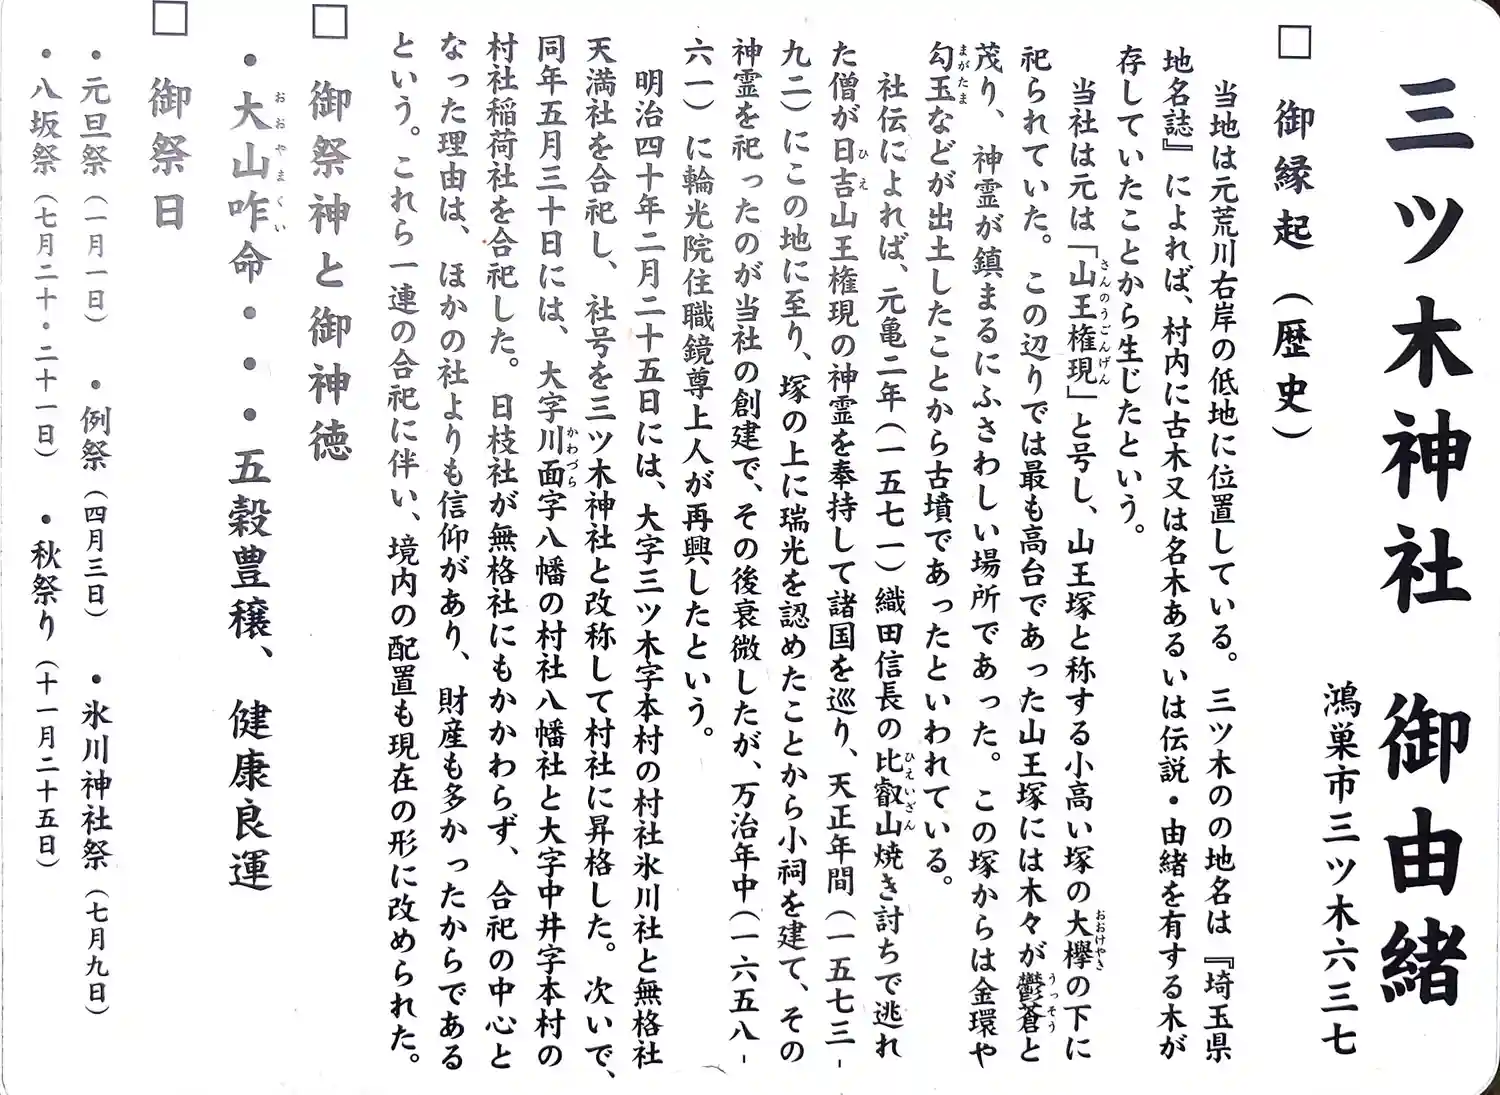 三ツ木神社　御由緒
鴻巣市三ツ木六三七
□　御縁起（歴史）
当地は元荒川右岸の低地に位置している。三ツ木のの地名は『埼玉県
地名誌』によれば、村内に古木又は名木あるいは伝説・由緒を有する木が
存していたことから生じたという。
当社は元は「山王権現」と号し、山王塚と称する小高い塚の大欅の下に
祀られていた。この辺りでは最も高台であった山王塚には木々が鬱蒼と
茂り、神霊が鎮まるにふさわしい場所であった。この塚からは金環や
勾玉などが出土したことから古墳であったといわれている。
社伝によれば、元亀二年（一五七一）織田信長の比叡山焼き討ちで逃れ
た僧が日吉山王権現の神霊を奉持して諸国を巡り、天正年間（一五七三-
九二）にこの地に至り、塚の上に瑞光を認めたことから小祠を建て、その
神霊を祀ったのが当社の創建で、その後衰微したが、万治年中（一六五八-
六一）に輪光院住職鏡尊上人が再興したという。
明治四十年二月二十五日には、大字三ツ木字本村の村社氷川社と無格社
天満社を合祀し、社号を三ツ木神社と改称して村社に昇格した。次いで、
同年五月三十日には、大字川面字八幡の村社八幡社と大字中井字本村の
村社稲荷社を合祀した。日枝社が無格社にもかかわらず、合祀の中心と
なった理由は、ほかの社よりも信仰があり、財産も多かったからである
という。これら一連の合祀に伴い、境内の配置も現在の形に改められた。
□　御祭神と御神徳
・大山咋命・・・五穀豊穣、健康良運
□　御祭日
・元旦祭（一月一日）　・例祭（四月三日）　・氷川神社祭（七月九日）
・八坂祭（七月二十・二十一日）　・秋祭り（十一月二十五日）